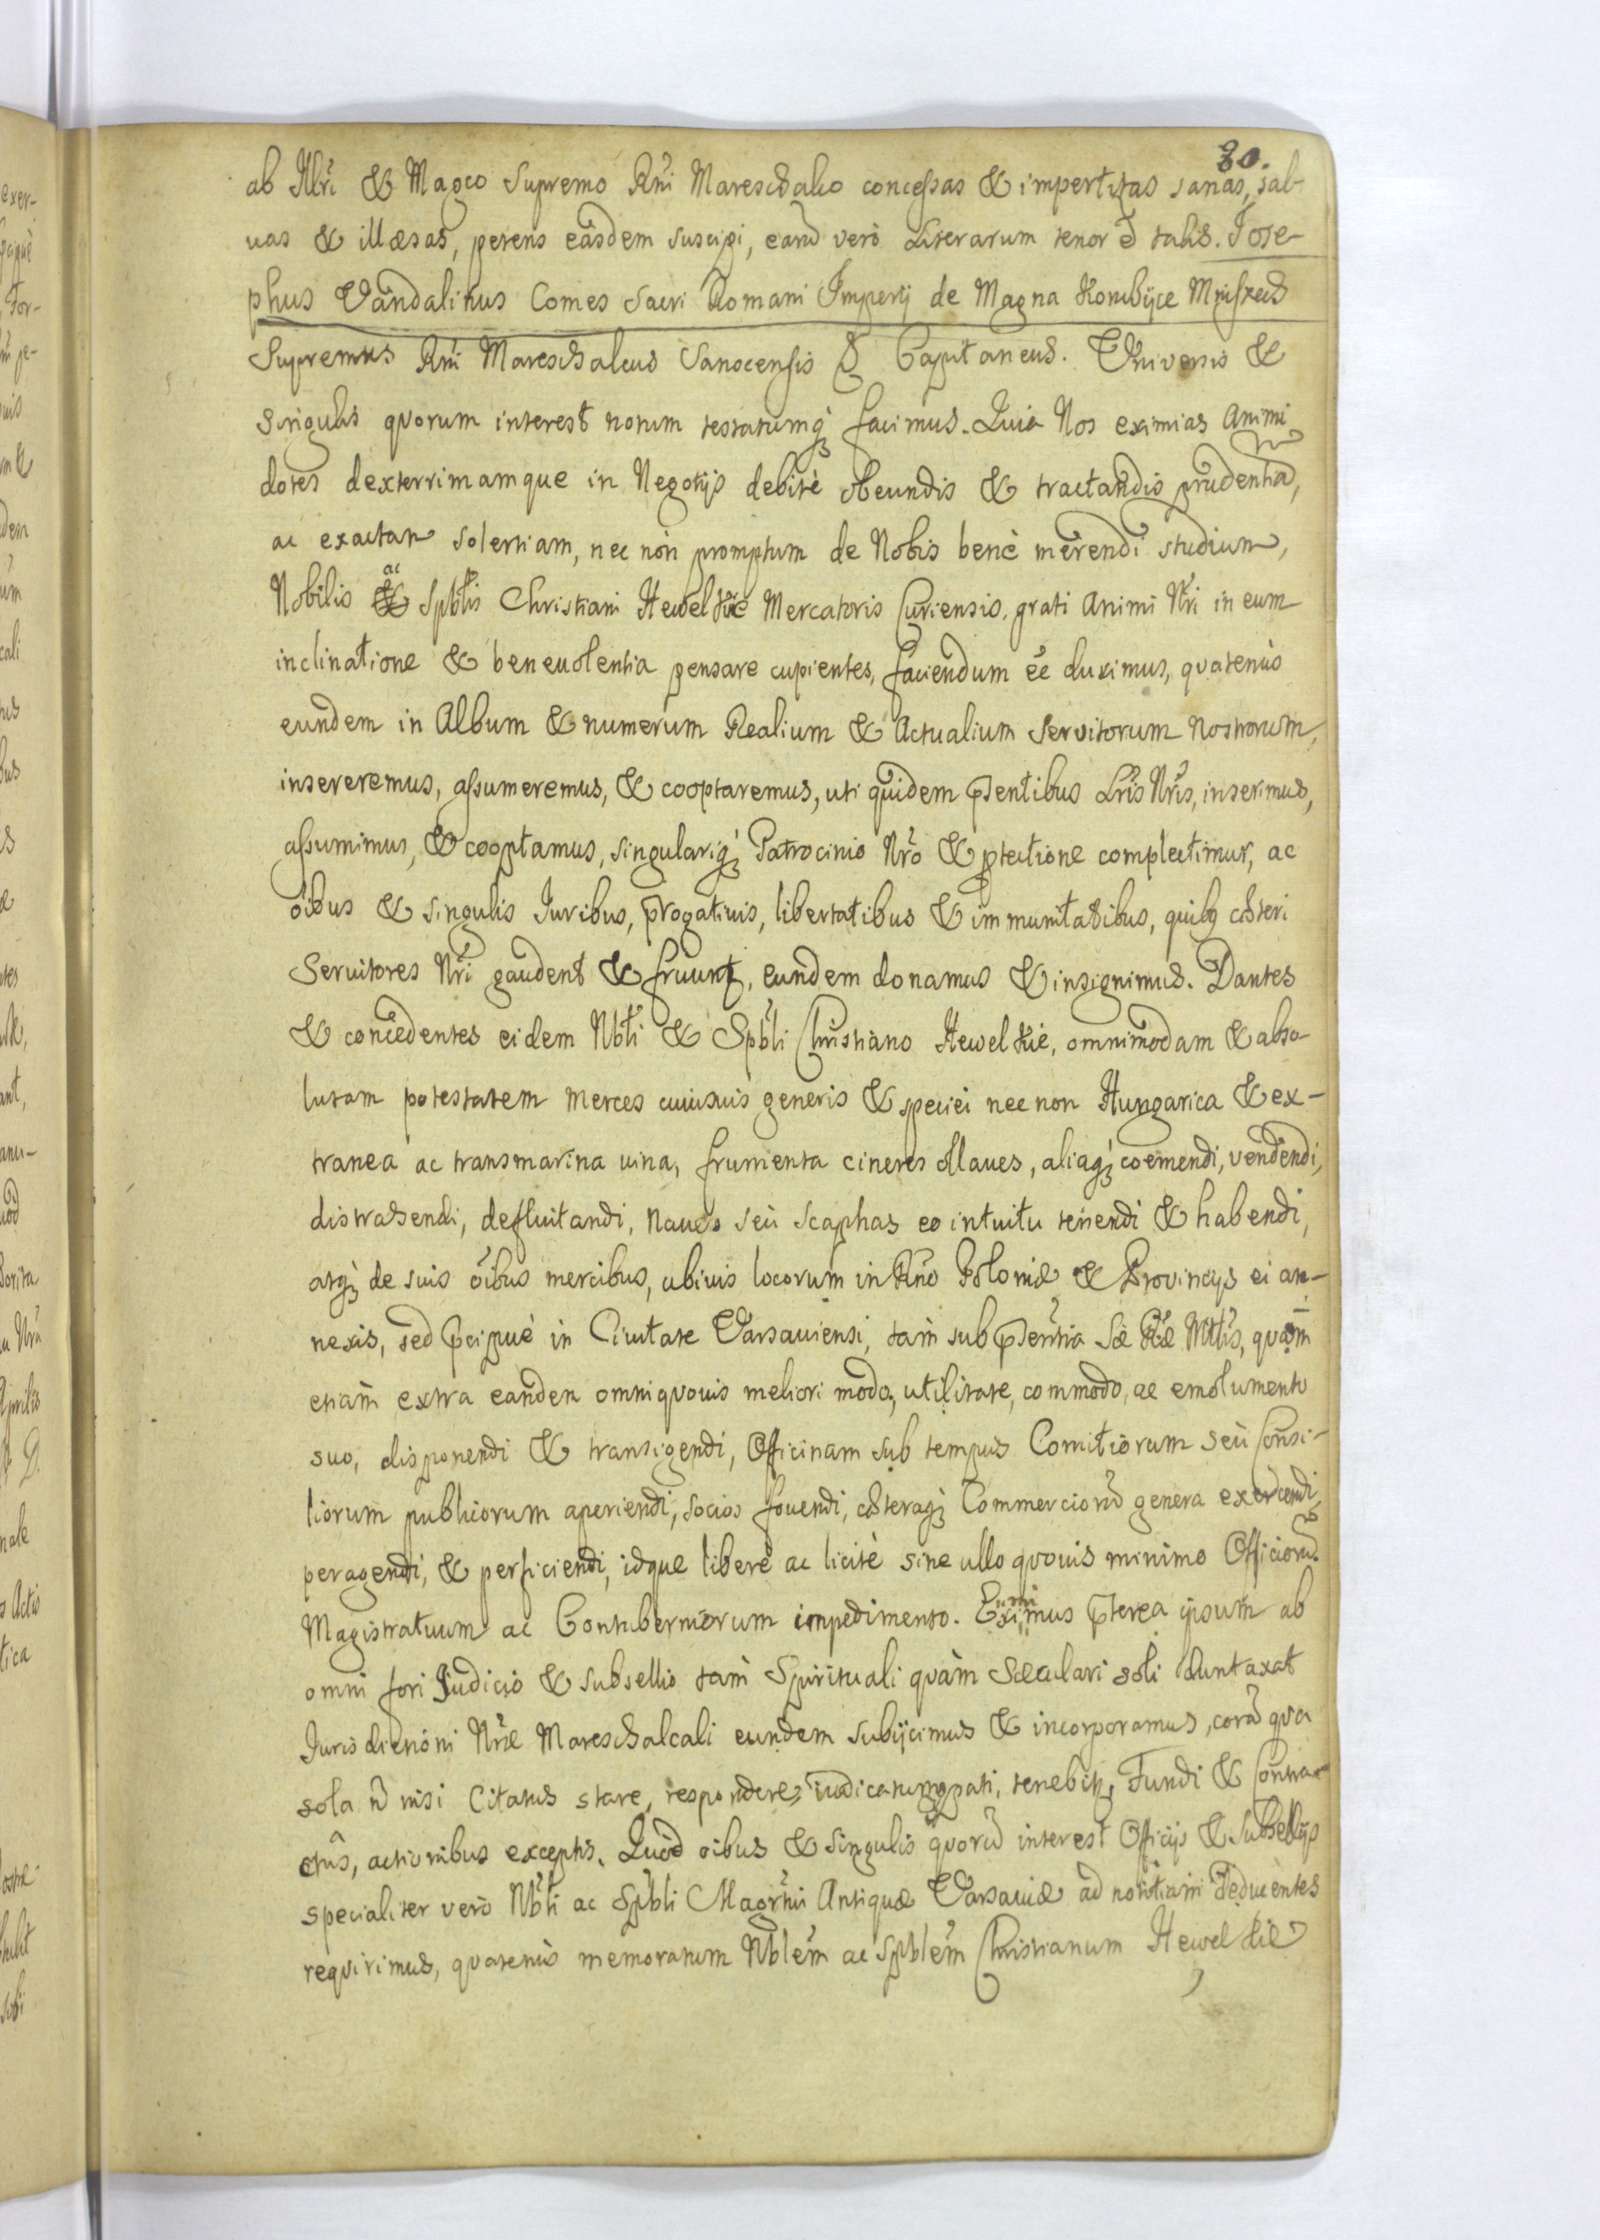 30.
ab Illri & Magco Supremo Rni Mareschalco concessas & impertitas sanas, sal-
uas & illæsas, petens easdem suscipi, earū verò Literarum tenor ē talis. Jose-
phus Vandalinus Comes Sacri Romani Imperij de Magna Konczyce Mniszech
Supremus Rni Mareschalcus Sanocensis & Capitaneus. Universis &
Singulis quorum interest notum testatumq; facimus. Quia Nos eximias Animi
dotes dexterrimamque in Negotijs debitè obeundis & tractandis prudentiā,
ac exactam solertiam, nec nòn promptum de Nobis benè merendi studium,
Nobilis ac Spblis Christiani Hewelkie Mercatoris Curiensis, grati Animi Nri in eum
inclinatione & beneuolentia pensare cupientes, faciendum eē duximus, quatenùs
eundem in Album & numerum Realium & Actualium Servitorum Nostrorum,
insereremus, assumeremus, & cooptaremus, uti quidem pntibus Lris Nris, inserimus,
assumimus, & cooptamus, singulariq; Patrocinio Nro & ptectione complectimur, ac
oibus & singulis Juribus, progatiuis, libertatibus & immunitatibus, quibq cæteri
Seruitores Nri gaudent & fruunt, eundem donamus & insignimus. Dantes
& concedentes eidem Nbli & Spbli Christiano Hewelkie, omnimodam & abso-
lutam potestatem merces cuiusuis generis & speciei nec non Hungarica & ex-
tranea ac transmarina uina, frumenta cineres clauas, aliaq; coemendi, vendendi,
distrahendi, defluitandi, naues seù scaphas eo intuitu tenendi & habendi,
atq; de suis oībus mercibus, ubiuis locorum in Rno Poloniæ & Provincijs ei an-
nexis, sed pcipuè in Ciuitate Varsauiensi, tam sub psentia Sæ Ræ Mttis, quàm
etiam extra eandem omni quouis meliori modo, utilitate, commodo, ac emolumento
suo, disponendi & transigendi, Officinam sub tempus Comitiorum seù Consi-
liorum publicorum aperiendi, socios fouendi, cæteraq; Commerciorū genera exercendi,
peragendi, & perficiendi, idque liberè ac licitè sine ullo quouis minimo Officiorū
Magistratuum ac Contuberniorum impedimento. Eximimus pterea ipsum ab
omni fori Judicio & subsellio tam Spirituali quàm Sæculari soli duntaxat
Jurisdictioni Nræ Mareschalcali eundem subijcimus & incorporamus, corā qua
sola ñ nisi Citatus stare, respondere, iudicatumq; pati, tenebit, Fundi & Contra-
ctûs, actionibus exceptis. Quod oibus & singulis quorū interest Officijs & Subsellijs
specialiter verò Nbli ac Spbli Magrtui Antiquæ Varsauiæ ad notitiam deducentes
requirimus, quatenùs memoratum Nblem ac Spblem Christianum Hewelkie